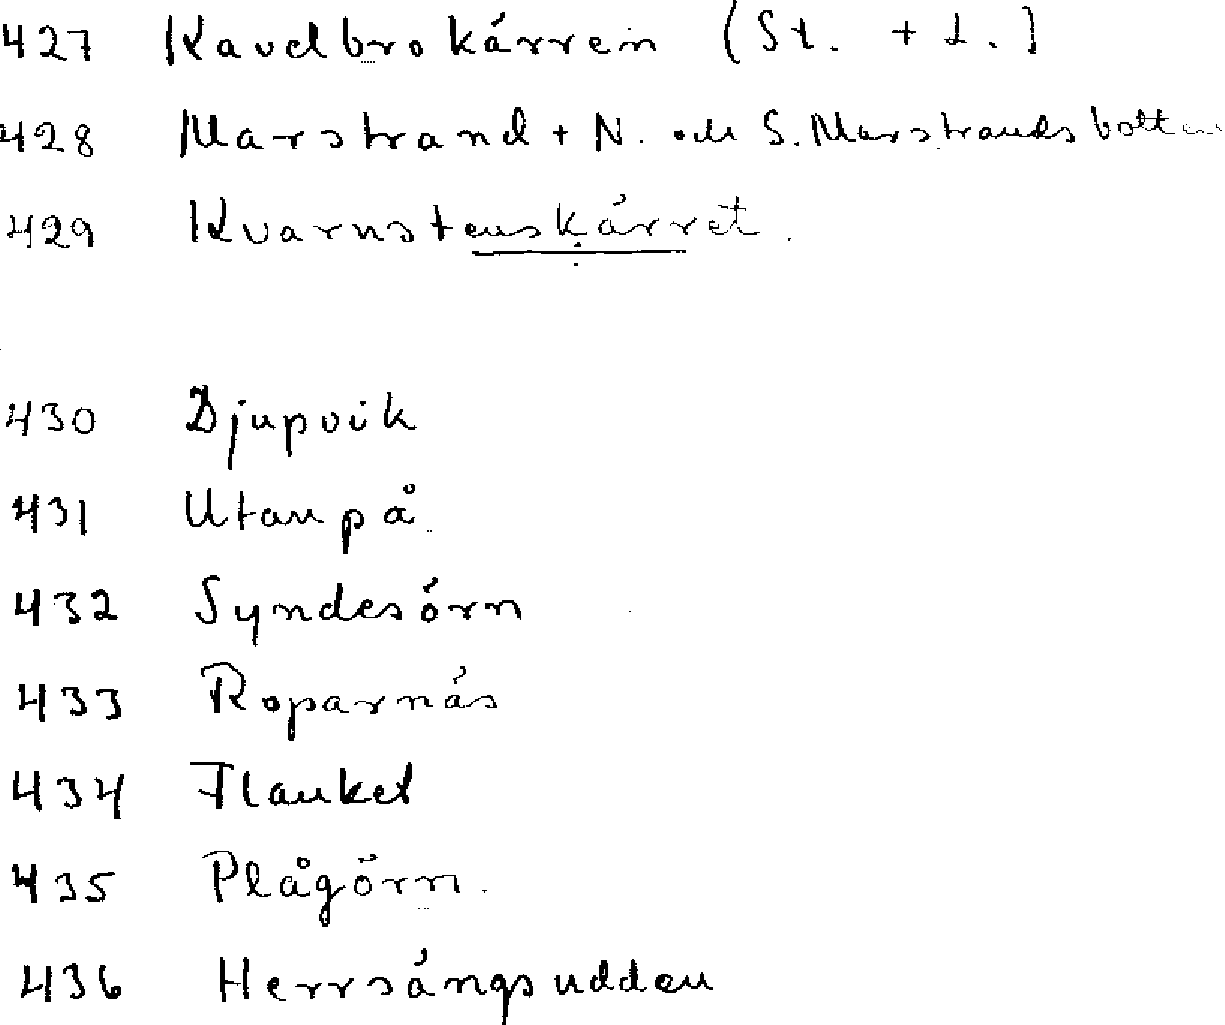 427 Kavelbrokärren (St. + L.)
428 Marstrand + N. och S. Marstrandsbotten
429 Kvarnstenskärret.
430 Djupvik
431 Utanpå
432 Syndesörn
433 Roparnäs
434 Flanket
435 Plågörn.
436 Herrsängsudden